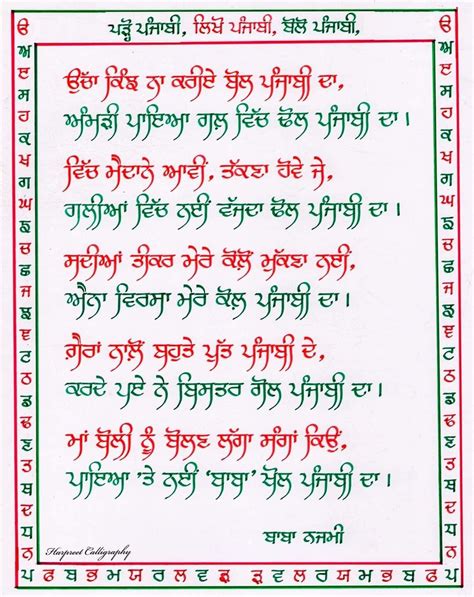 ਪੜ੍ਹੋ ਪੰਜਾਬੀ, ਲਿਖੋ ਪੰਜਾਬੀ, ਬੋਲੋ ਪੰਜਾਬੀ,
ੳ ਅ ੲ ਸ ਹ ਕ ਖ ਗ ਘ ਙ ਚ ਛ ਜ ਝ ਞ ਟ ਠ ਡ ਢ ਣ ਤ ਥ ਦ ਧ ਨ
ਉੱਚਾ ਕਿੰਝ ਨਾ ਕਰੀਏ ਬੋਲ ਪੰਜਾਬੀ ਦਾ,
ਅੰਮੜੀ ਪਾਇਆ ਗਲ ਵਿੱਚ ਢੋਲ ਪੰਜਾਬੀ ਦਾ।
ਵਿੱਚ ਮੈਦਾਨੇ ਆਵੀਂ, ਤੱਕਣਾ ਹੋਵੇ ਜੇ,
ਗਲੀਆਂ ਵਿੱਚ ਨਈਂ ਵੱਜਦਾ ਢੋਲ ਪੰਜਾਬੀ ਦਾ।
ਸਦੀਆਂ ਤੀਕਰ ਮੇਰੇ ਕੋਲੋਂ ਮੁੱਕਣਾ ਨਈਂ,
ਐਨਾ ਵਿਰਸਾ ਮੇਰੇ ਕੋਲ ਪੰਜਾਬੀ ਦਾ।
ਗ਼ੈਰਾਂ ਨਾਲੋਂ ਬਹੁਤੇ ਪੁੱਤ ਪੰਜਾਬੀ ਦੇ,
ਕਰਦੇ ਪਏ ਨੇ ਬਿਸਤਰ ਗੋਲ ਪੰਜਾਬੀ ਦਾ।
ਮਾਂ ਬੋਲੀ ਨੂੰ ਬੋਲਣ ਲੱਗਾ ਸੰਗਾਂ ਕਿਉਂ,
ਪਾਇਆ 'ਤੇ ਨਈਂ 'ਬਾਬਾ' ਖੋਲ ਪੰਜਾਬੀ ਦਾ।
ਬਾਬਾ ਨਜਮੀ
Harpreet Calligraphy
ੳ ਅ ੲ ਸ ਹ ਕ ਖ ਗ ਘ ਙ ਚ ਛ ਜ ਝ ਞ ਟ ਠ ਡ ਢ ਣ ਤ ਥ ਦ ਧ ਨ
ਪ ਫ ਬ ਭ ਮ ਯ ਰ ਲ ਵ ੜ ੜ ਵ ਲ ਰ ਯ ਮ ਭ ਬ ਫ ਪ